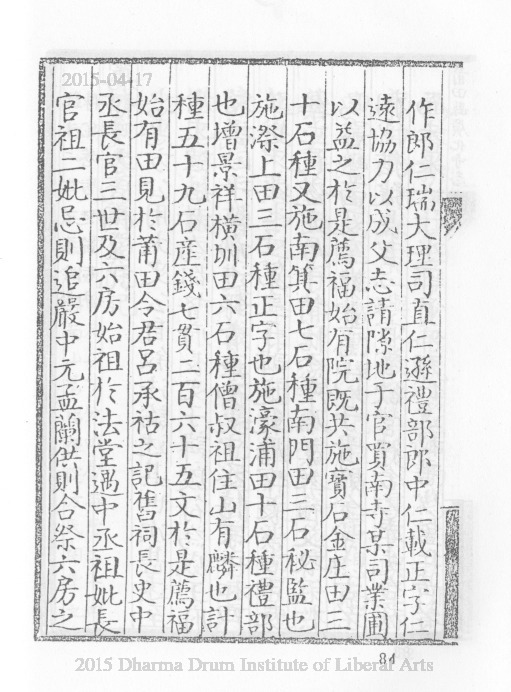 2015-04-17
作郎仁瑞大理司直仁遜禮部郎中仁載正字仁
遠協力以成父志請隙地于官買南寺某司業圃
以益之於是薦福始有院既共施寳石金庄田三
十石種又施南箕田七石種南門田三石秘監也
施漈上田三石種正字也施濠浦田十石種禮部
也增景祥橫圳田六石種僧叔祖住山有麟也計
種五十九石產錢七貫二百六十五文於是薦福
始有田見於莆田令君呂承祜之記舊祠長史中
丞長官三世及六房始祖於法堂遇中丞祖妣長
官祖二妣忌則追嚴中元盂蘭供則合祭六房之
84
2015 Dharma Drum Institute of Liberal Arts